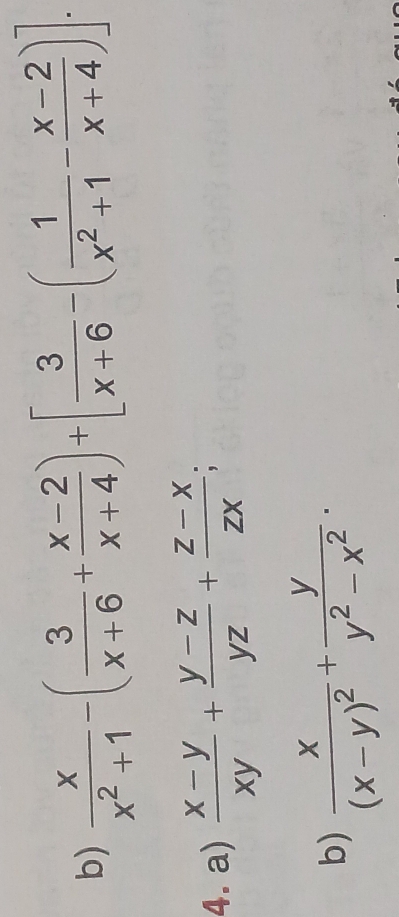 b) \frac{x}{x^2+1} - \left(\frac{3}{x+6} + \frac{x-2}{x+4}\right) + \left[\frac{3}{x+6} - \left(\frac{1}{x^2+1} - \frac{x-2}{x+4}\right)\right].
4. a) \frac{x-y}{xy} + \frac{y-z}{yz} + \frac{z-x}{zx};
b) \frac{x}{(x-y)^2} + \frac{y}{y^2-x^2}.